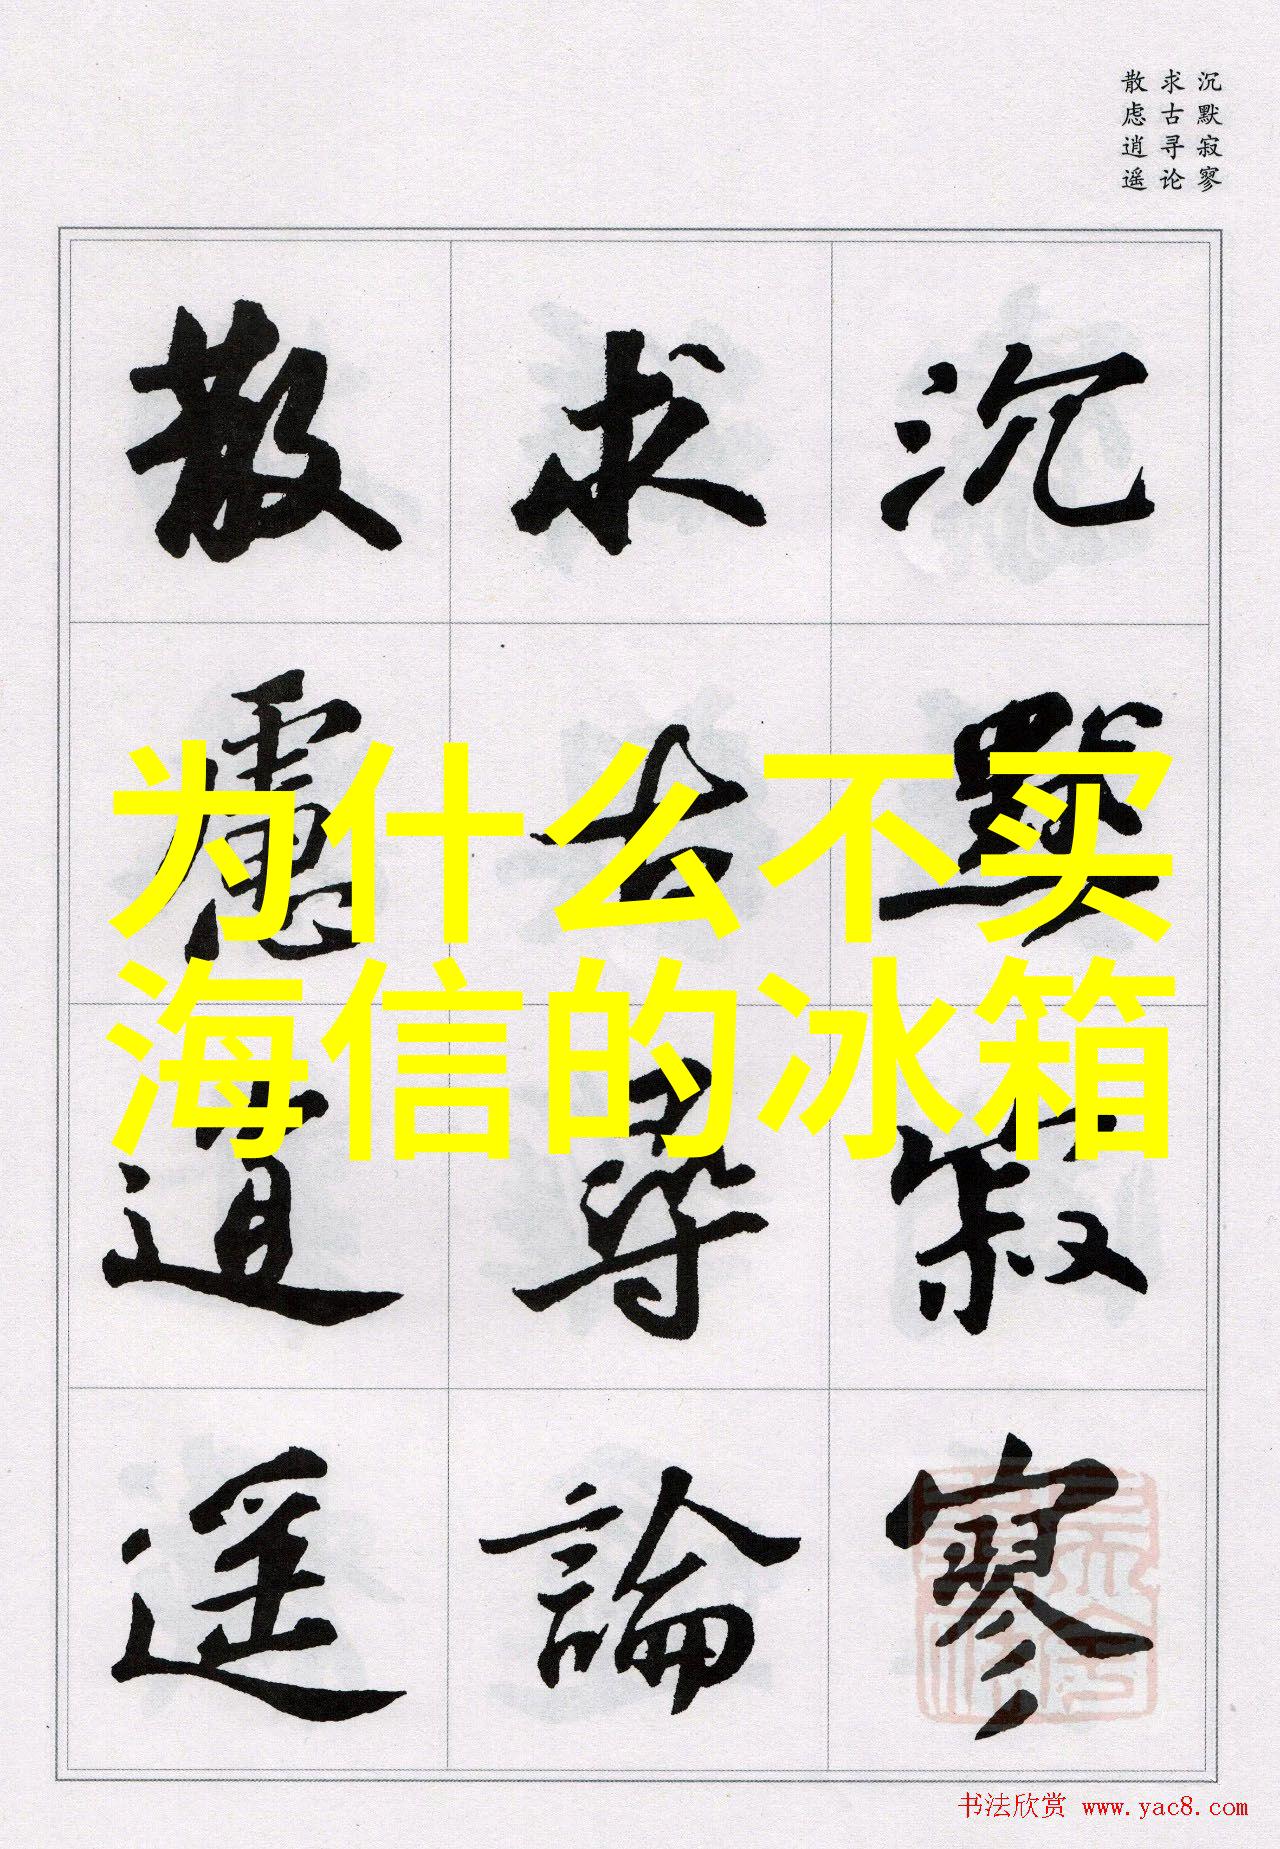 沉默寂寥
求古寻论
散虑逍遥
沉默寂寥
求古尋論
散慮逍遥
为什么不卖
海信的冰箱
书法欣赏 www.yac8.com